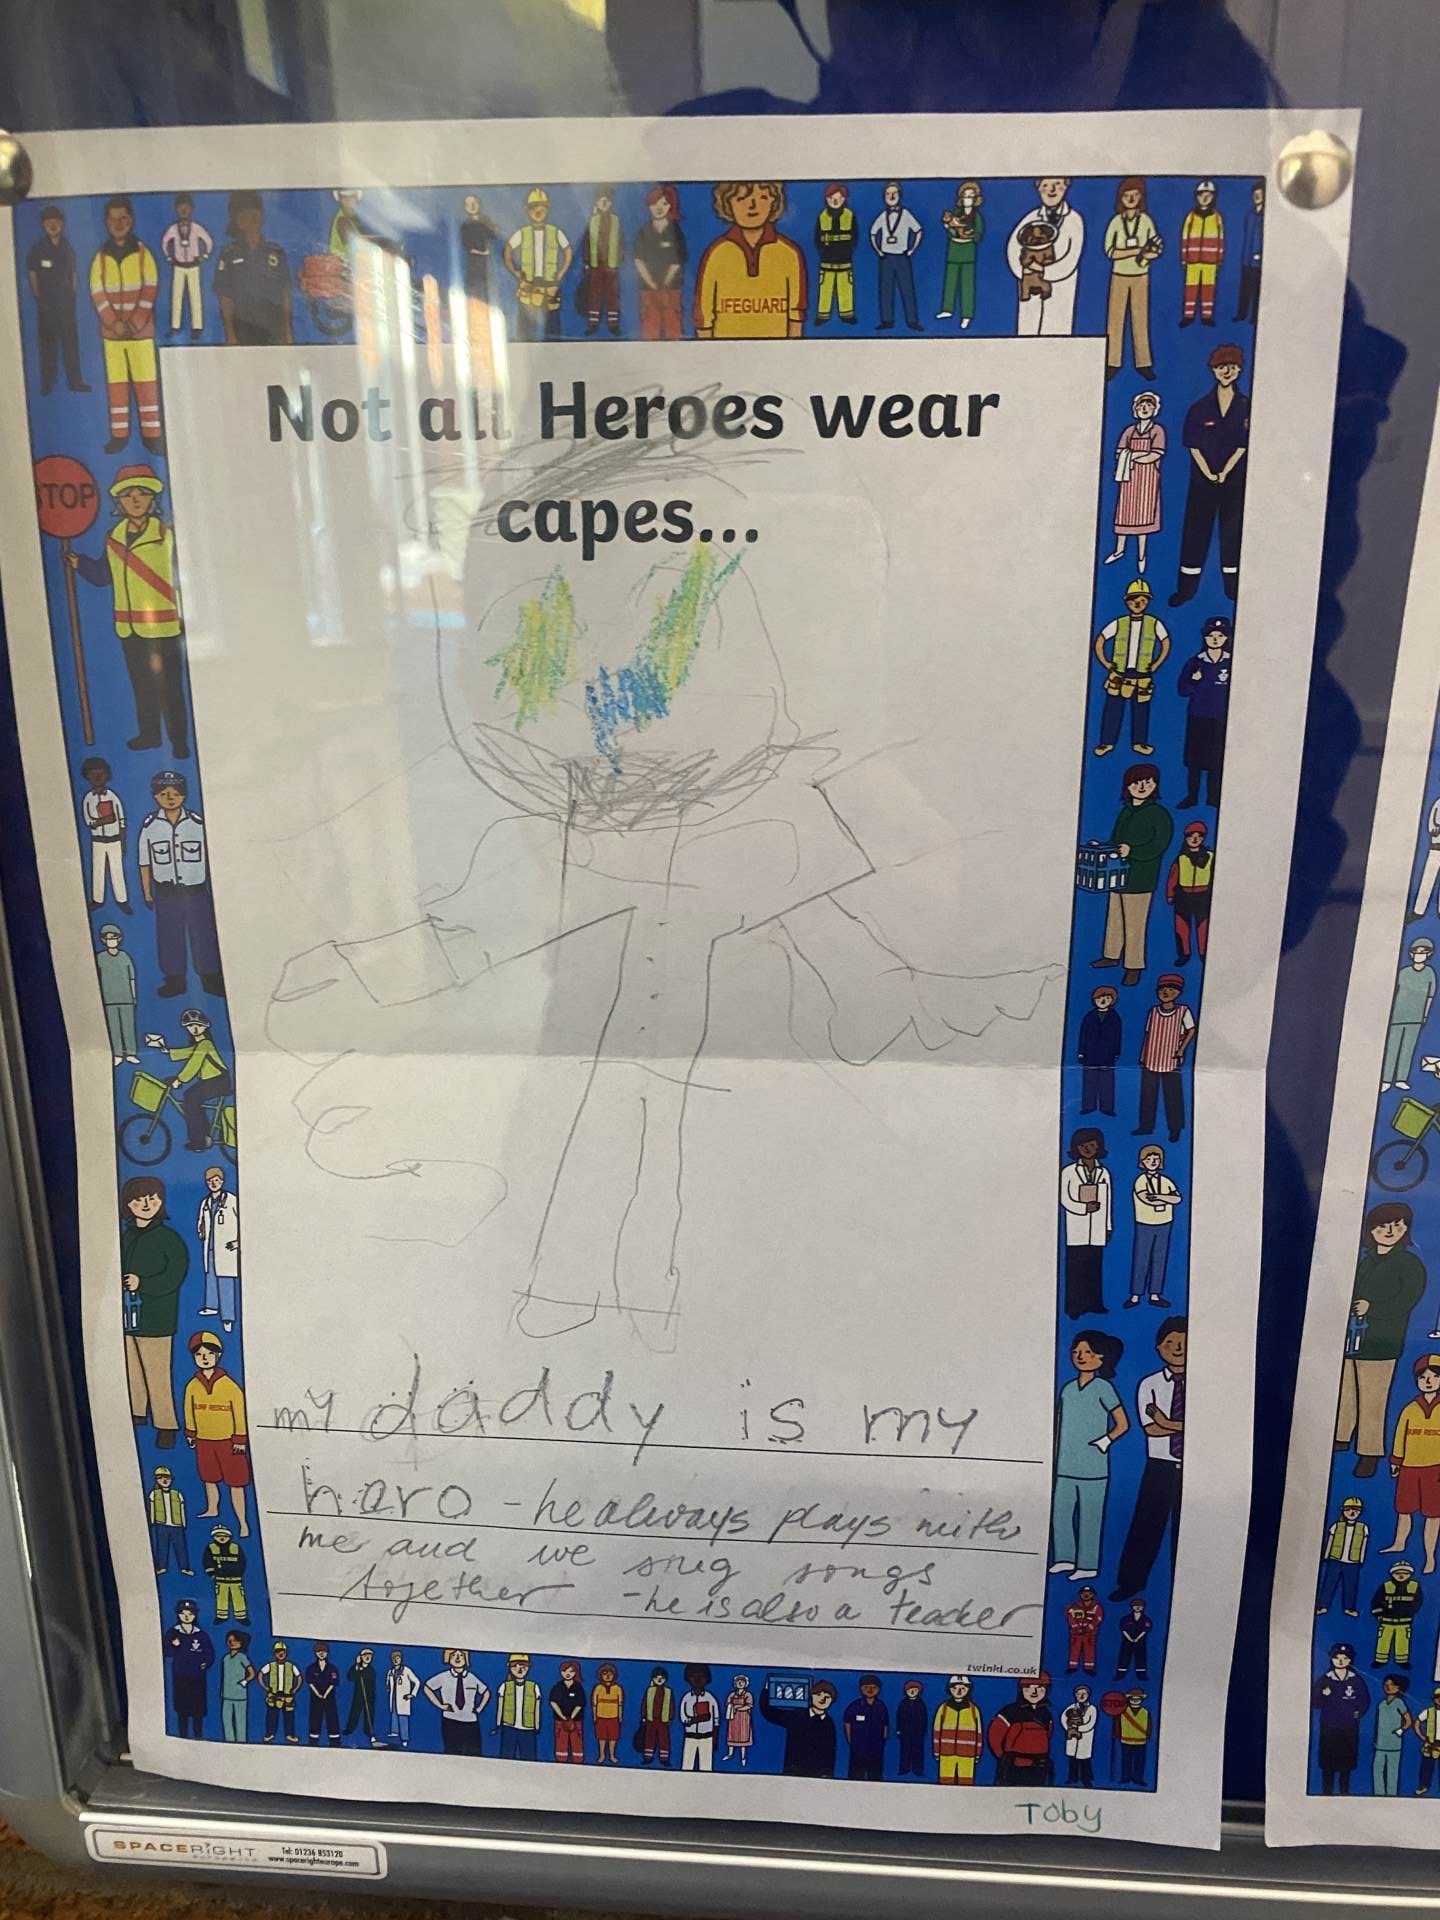 LIFEGUARD
Not all Heroes wear
capes...
STOP
my daddy is my
haro - he always plays with
me and we sing songs
together - he is also a teacher
twinkl.co.uk
Toby
SPACERIGHT
Tel: 01236 853120
www.spacerighteurope.com